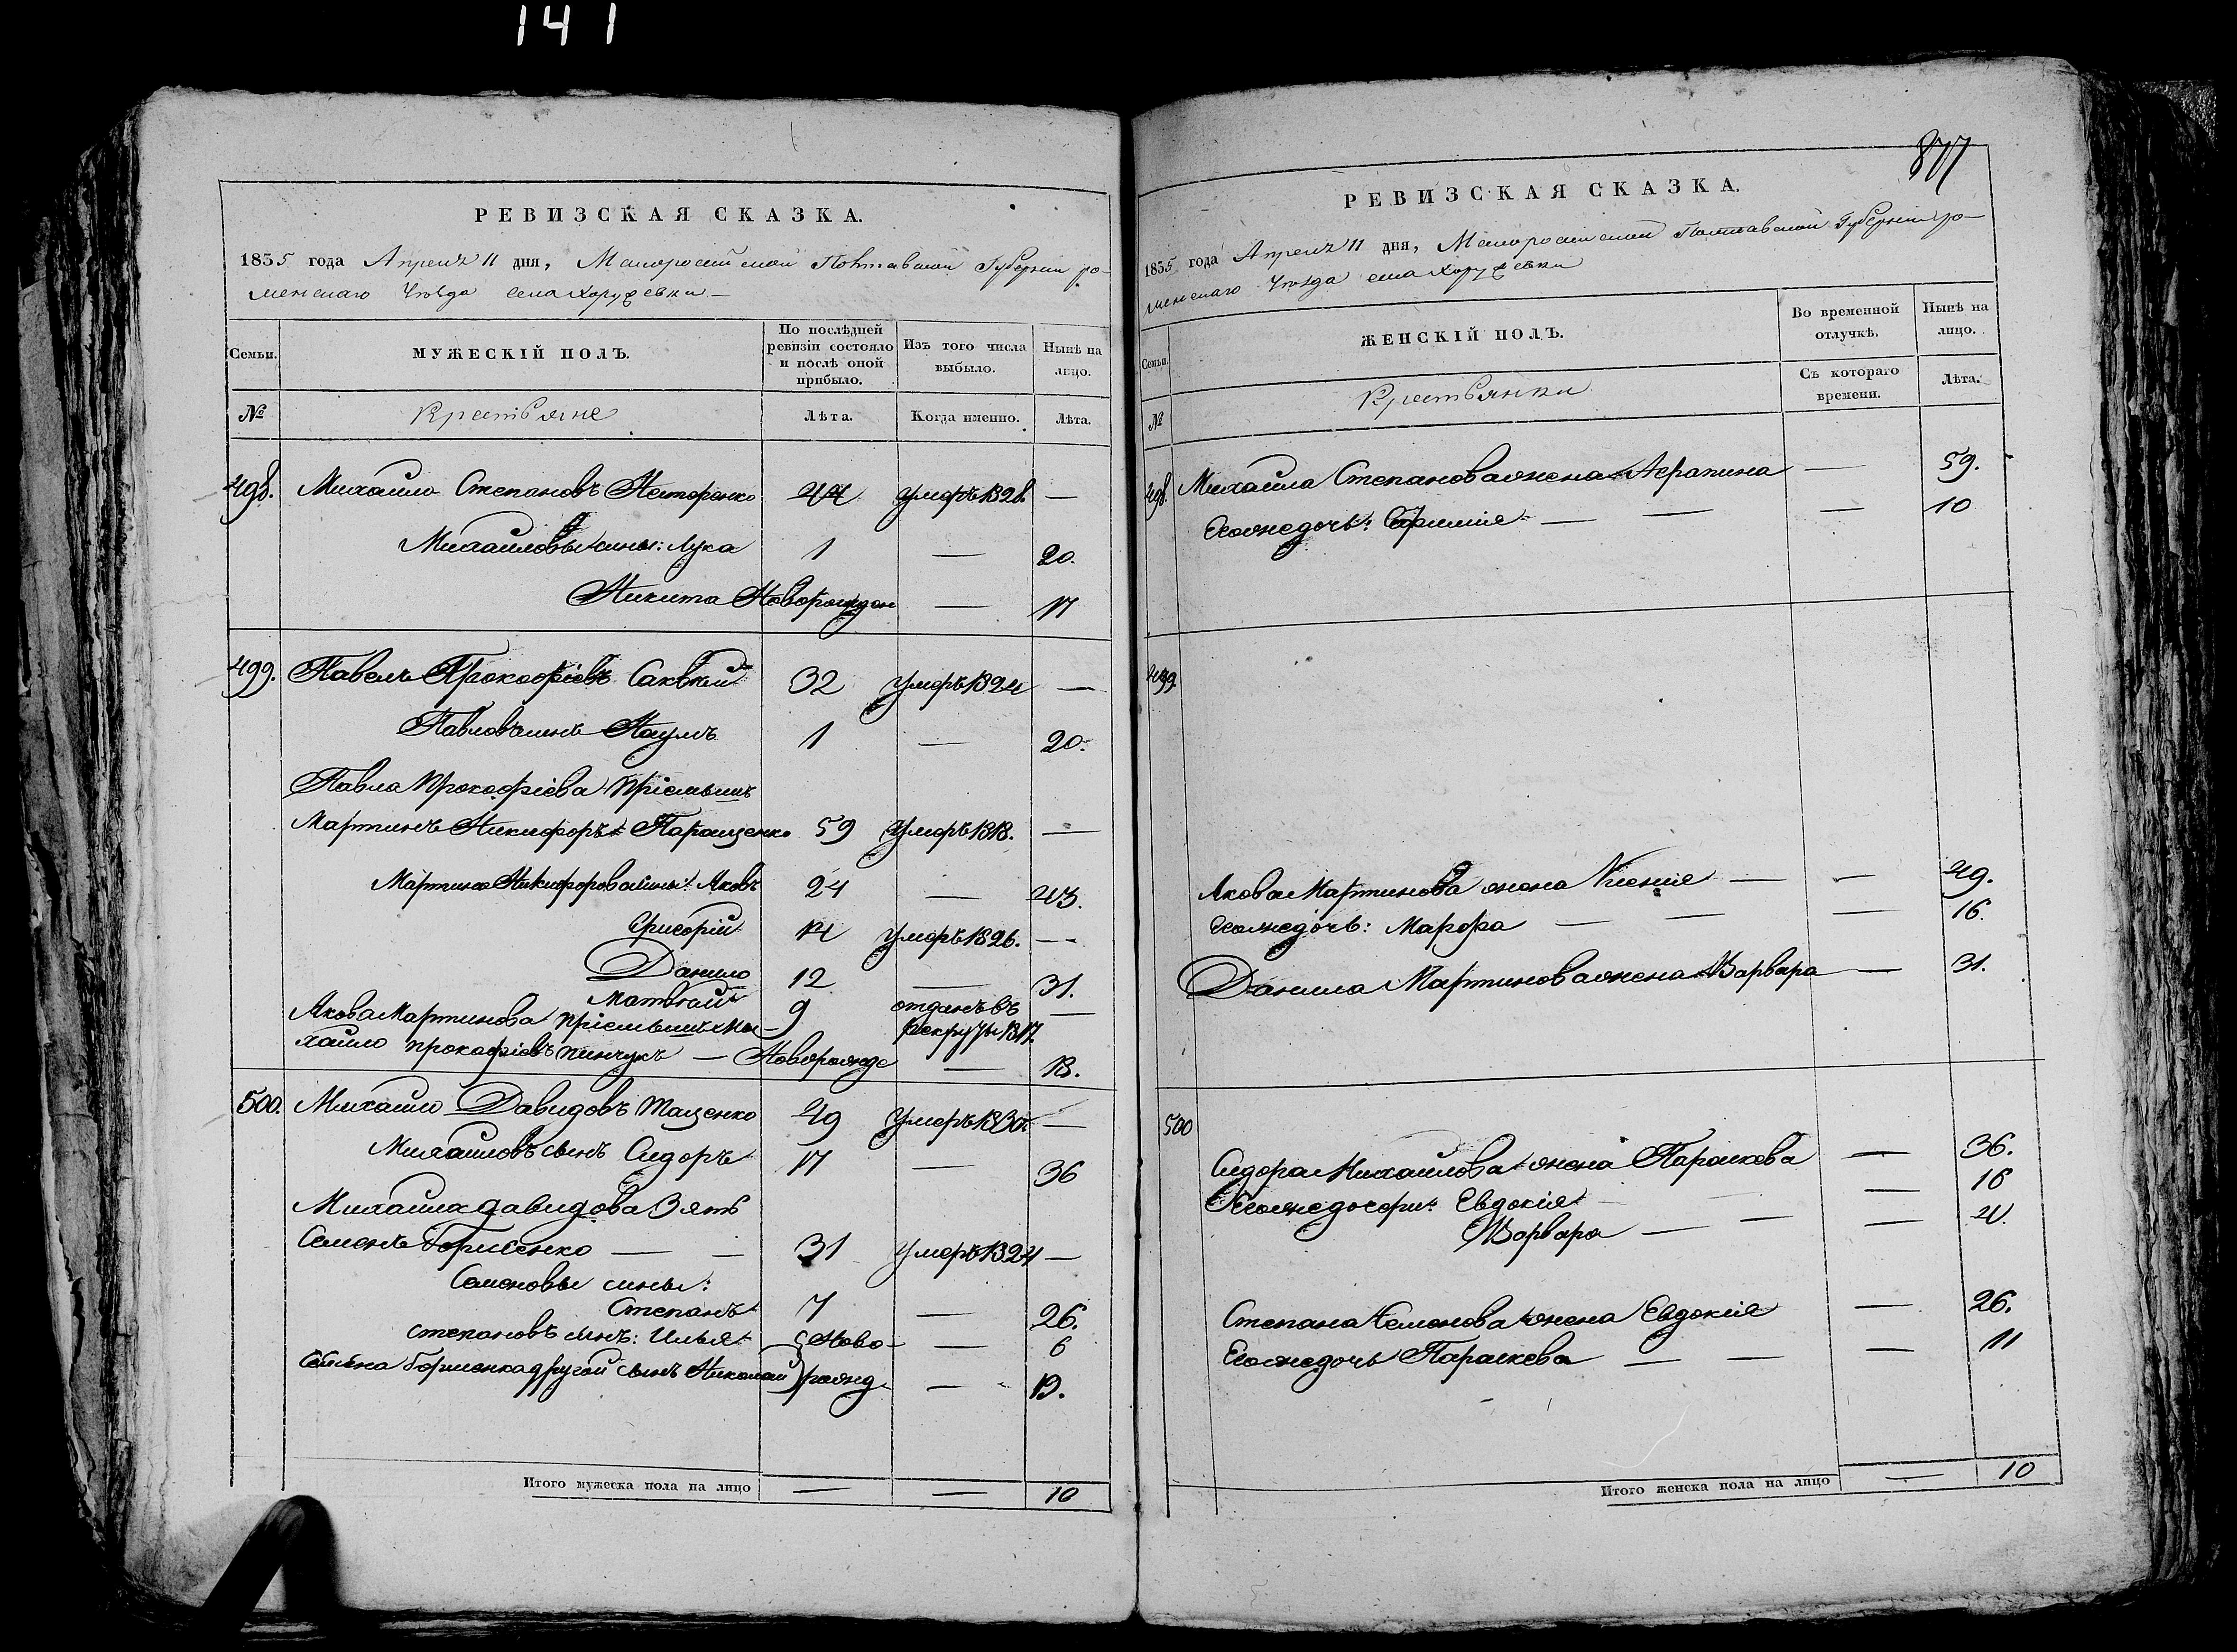 141
РЕВИЗСКАЯ СКАЗКА.
1835 года Апреля 11 дня, Малороссийской Полтавской Губернии ро-
менскаго Уѣзда села Хоружевки
Семьи.
МУЖЕСКІЙ ПОЛЪ.
По послѣдней ревизіи состояло и послѣ оной прибыло.
Изъ того числа выбыло.
Нынѣ на лицо.
№
Крестьяне
Лѣта.
Когда именно.
Лѣта.
498. Михайло Степановъ Несторенко 44 умеръ 1828. —
Михайловы сины: Лука 1 — 20.
Никита Новорожден — 17
499. Павелъ Прокофіевъ 32 умеръ 1824 —
Павловъ синъ Наумъ 1 — 20.
Павла Прокофіева Пріемышъ
Мартинъ Никифоръ Паращенко 59 умеръ 1818. —
Мартина Никифорова сины: Яковъ 24 — 43.
Григорій 14 умеръ 1826. —
Данило 12 — 31.
Матвѣй 9 отданъ въ рекруты 1817. —
Якова Мартинова Пріемышъ Ми-
хайло Прокофіевъ Пинчукъ — Новорожде — 18.
500. Михайло Давидовъ Тащенко 49 умеръ 1830. —
Михайловъ сынъ Сидоръ 17 — 36
Михайла Давидова Зять
Семенъ Борисенко — — 31 умеръ 1824 —
Семеновы сины:
Степанъ 7 — 26.
Степановъ синъ: Илья Ново- — 6
Семена Борисенка другой сынъ Николай рожд — 19.
Итого мужеска пола на лицо — — 10
877
РЕВИЗСКАЯ СКАЗКА.
1835 года Апреля 11 дня, Малороссийской Полтавской Губернии ро-
менскаго Уѣзда села Хоружевки
Семьи.
ЖЕНСКІЙ ПОЛЪ.
Во временной отлучкѣ.
Нынѣ на лицо.
№
Крестьянки
Съ котораго времени.
Лѣта.
498. Михайла Степанова жена Аграпина — 59.
Егожедочь: Ефимия — — — 10
499.
Якова Мартинова жена Ксения — — 49.
Егожедочь: Марфа — — — 16.
Данила Мартинова жена Варвара — 31.
500
Сидора Михайлова жена Параскева — 36.
Егожедочери: Евдокія — 16
Варвара — — —
Степана Семенова жена Евдокия — 26.
Егожедочь Параскева — — — 11
Итого женска пола на лицо — 10